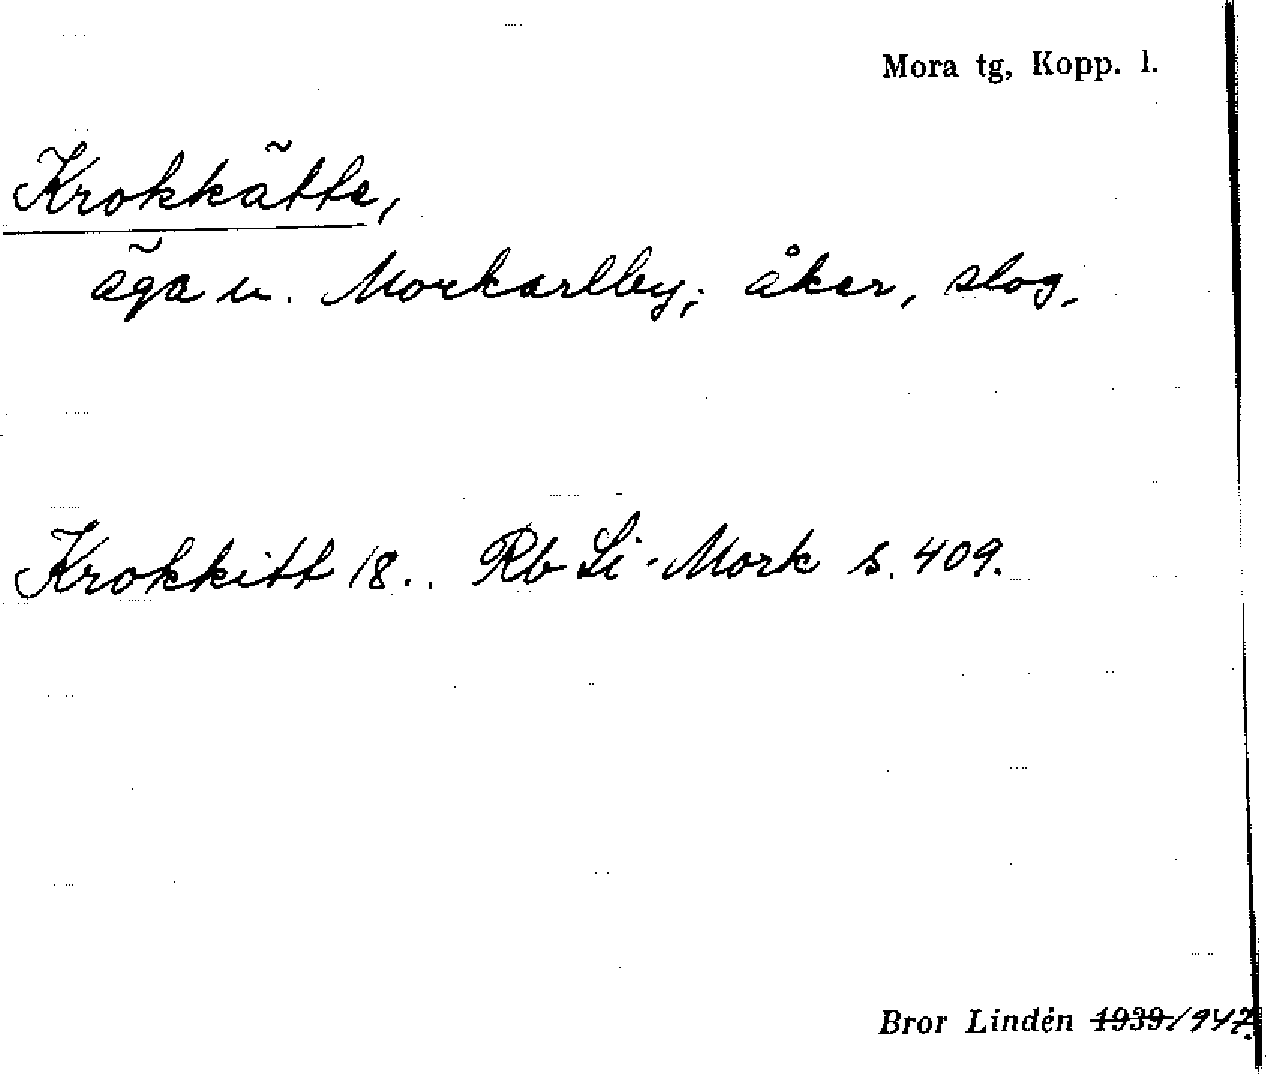 Mora tg, Kopp. l.
Krokkätte,
äga u. Morkarlby; åker, slog.
Krokkitt 18.. Rb Li-Mork s. 409.
Bror Lindén 1939 1947.